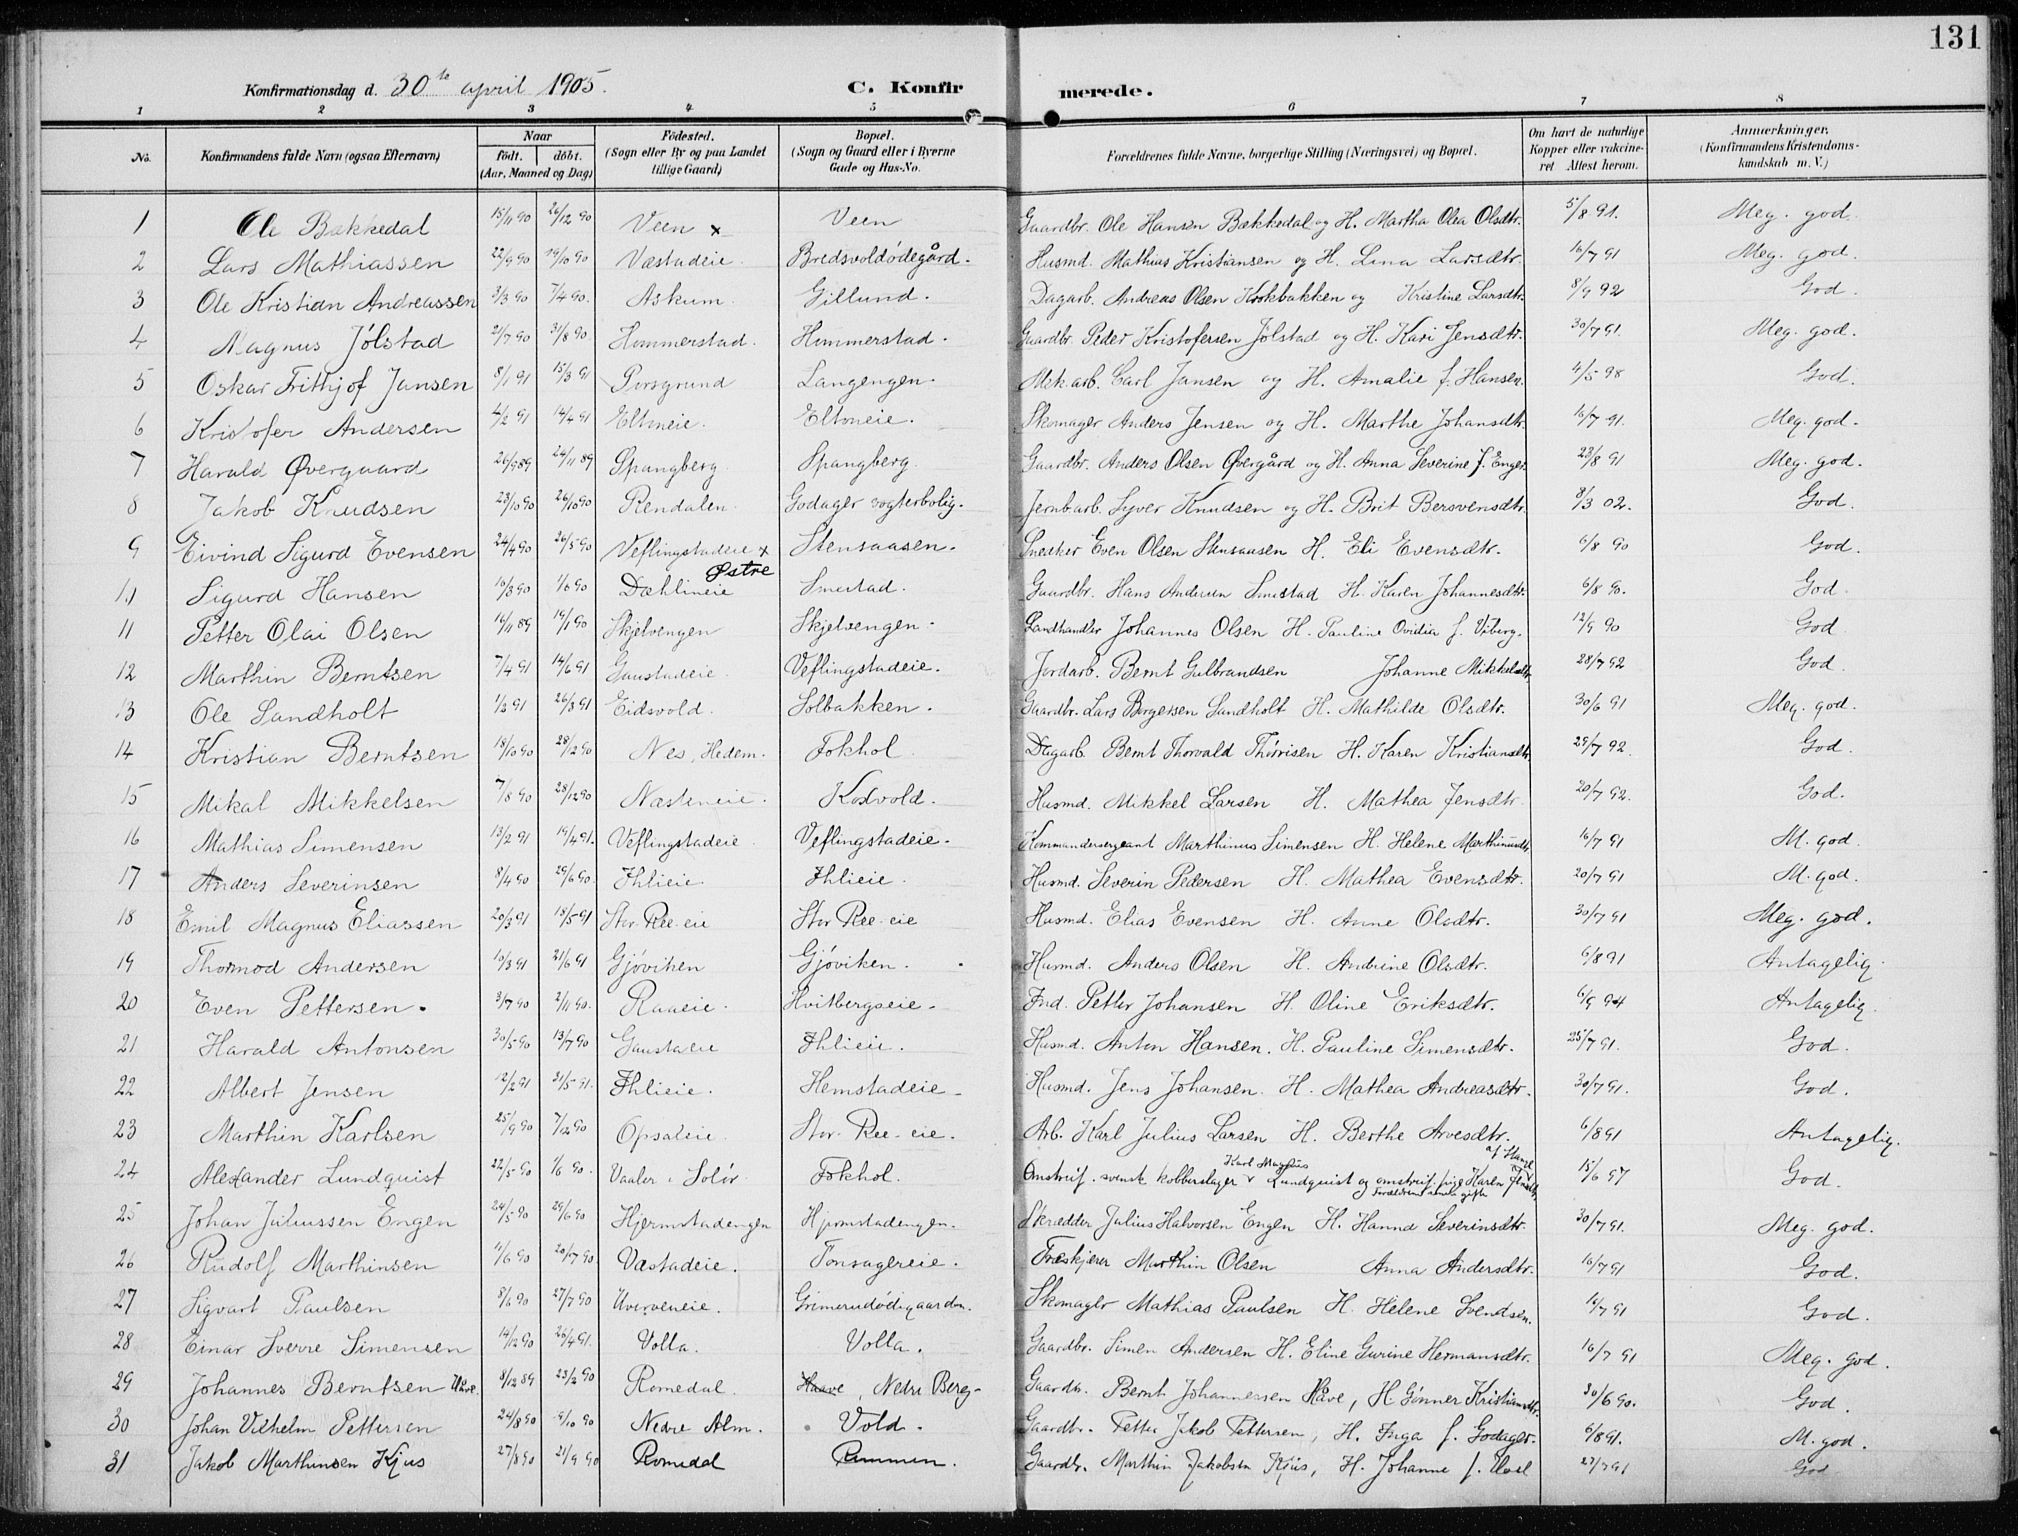 131
Konfirmationsdag d. 30te april 1905. C. Konfir merede.
1 2 3 4 5 6 7 8
No. Konfirmandens fulde Navn (ogsaa Efternavn) Naar født. døbt. (Aar, Maaned og Dag) Fødested. (Sogn eller By og paa Landet tillige Gaard) Bopæl. (Sogn og Gaard eller i Byerne Gade og Hus-No. Forældrenes fulde Navne, borgerlige Stilling (Næringsvei) og Bopæl. Om havt de naturlige Kopper eller vakcineret Attest herom. Anmærkninger. (Konfirmandens Kristendomskundskab m. V.)
1 Ole Bækkedal 15/11 90 26/12 90 Veen x Veen Gaardbr. Ole Hansen Bækkedal og H. Martha Olea Olsdtr. 5/8 91. Meg. god.
2 Lars Mathiassen 22/9 90 19/10 90 Væstadeie. Bredsvoldødegård. Husmd. Mathias Kristiansen og H. Lina Larsdtr. 16/7 91 Meg. god.
3 Ole Kristian Andreassen 3/3 90 7/4 90. Askum. Gillund. Dagarb. Andreas Olsen Krokbakken og Kristine Larsdtr. 8/9 92 God.
4 Magnus Jølstad 21/7 90 31/8 90 Hommerstad. Hommerstad. Gaardbr. Peder Kristofersen Jølstad og H. Kari Jensdtr. 30/7 91. Meg. god.
5 Oskar Frithjof Jansen 8/1 91 15/3 91 Porsgrund Langengen. Mek. arb. Carl Jansen og H. Amalie f. Hansen. 4/5 98 God.
6 Kristofer Andersen 4/2 91 14/4 91 Eltoneie. Eltoneie. Skomager Anders Jensen og H. Marthe Johansdtr. 16/7 91. Meg. god.
7 Harald Øvergaard 26/9 89 24/11 89 Spangberg Spangberg. Gaardbr. Anders Olsen Øvergård og H. Anna Severine f. Enger. 23/8 91 Meg. god.
8 Jakob Knudsen 23/10 90 26/10 90 Rendalen. Godager vogterbolig. Jernbarb. Syver Knudsen og H. Brit Bersvensdtr. 8/3 02. God.
9 Eivind Sigurd Evensen 24/4 90 26/5 90 Veflingstadeie x Stensaasen. Snedker Even Olsen Stensaasen H. Eli Evensdtr. 6/8 90 God.
10 Sigurd Hansen 10/3 90 1/6 90 Dæhlineie Østre Smestad. Gaardbr. Hans Andersen Smestad H. Karen Johannesdtr. 6/8 90. God.
11 Petter Olai Olsen 16/11 89 19/1 90 Skjelvengen Skjelvengen. Landhandler Johannes Olsen H. Pauline Ovidia f. Viberg. 12/9 90 God
12 Marthin Berntsen 7/4 91 14/6 91 Gaustadeie. Veflingstadeie. Jordarb. Bernt Gulbrandsen Johanne Mikkelsdtr. 28/7 92 God.
13 Ole Sandholt 1/2 91 26/3 91 Eidsvold. Solbakken. Gaardbr. Lars Borgersen Sandholt H. Mathilde Olsdtr. 30/6 91 Meg. god.
14 Kristian Berntsen 18/10 90 28/12 90 Nes, Hedem. Fokhol Dagarb. Bernt Thorvald Thorrisen H. Karen Kristiansdtr. 29/7 92. God.
15 Mikal Mikkelsen 7/8 90 28/12 90 Næsteneie. Koxvold. Husmd. Mikkel Larsen H. Mathea Jensdtr. 20/7 92. God.
16 Mathias Simensen 13/2 91 19/4 91. Veflingstadeie. Veflingstadeie. Kommandersergeant Marthinus Simensen H. Helene Marthinusdtr. 16/7 91 M. god.
17 Anders Severinsen 8/4 90 29/6 90. Ihlieie. Ihlieie. Husmd. Severin Pedersen H. Mathea Evensdtr. 20/7 91 M. god.
18 Emil Magnus Eliassen 20/3 91 18/5 91 Stor-Ree-eie Stor Ree-eie Husmd. Elias Evensen H. Anne Olsdtr. 30/7 91 Meg. god.
19 Thormod Andersen 10/3 91 21/6 91 Gjøviken Gjøviken. Husmd. Anders Olsen H. Andrine Olsdtr. 6/8 91 Antagelig.
20 Even Pettersen. 3/7 90 2/11 90. Raaeie. Hvitbergseie. Ind. Petter Johansen H. Oline Eriksdtr. 6/9 94 Antagelig.
21 Harald Antonsen 30/5 90 13/7 90 Gaustadeie Ihlieie. Husmd. Anton Hansen. H. Pauline Simensdtr. 25/7 91. God.
22 Albert Jensen 12/2 91 31/5 91. Ihlieie. Hemstadeie. Husmd. Jens Johansen. H. Mathea Andreasdtr. 30/7 91. God.
23 Marthin Karlsen 25/9 90 7/12 90 Opsaleie. Stor-Ree-eie. Arb. Karl Julius Larsen H. Berthe Arvesdtr. 6/8 91 Antagelig.
24 Alexander Lundquist 22/5 90 1/6 90. Vaaler i Solør. Fokhol. Omstreif. svensk kobberslager Karl Magnus Lundquist og omstreif. pige Karen Jensdtr. 15/6 97 God.
25 Johan Juliussen Engen 24/5 90 29/6 90 Hjermstadengen Hjermstadengen. Skrædder Julius Halvorsen Engen H. Hanna Severinsdtr. 30/7 91. Meg. god.
26 Rudolf Marthinsen 11/6 90 20/7 90. Væstadeie. Fonsagereie. Træskjærer Marthin Olsen Anna Andersdtr. 16/7 91 God.
27 Sigvart Paulsen 8/6 90 27/7 90 Uverveneie. Grimerudødegaarden. Skomager Mathias Paulsen H. Helene Svendsen. 16/7 91 God.
28 Einar Sverre Simensen 14/12 90 26/4 91. Volla. Volla. Gaardbr. Simen Andersen H. Eline Gurine Hermansdtr. 16/7 91 Meg. god.
29 Johannes Berntsen Håve. 8/12 89 23/2 90 Romedal. Haave, Nedre Berg. Gaardb. Bernt Johannessen Håve, H. Gønner Kristiansdtr. 30/6 90. God.
30 Johan Vilhelm Pettersen 24/8 90 9/10 90 Nedre Alm. Vold. Gaardbr. Petter Jakob Pettersen, H. Inga f. Godager. 6/8 91. M. god.
31 Jakob Marthinsen Kjus 27/8 90 21/9 90 Romedal Rommen. Gaardbr. Marthin Jakobsen Kjus, H. Johanne f. Hoel 27/7 91 God